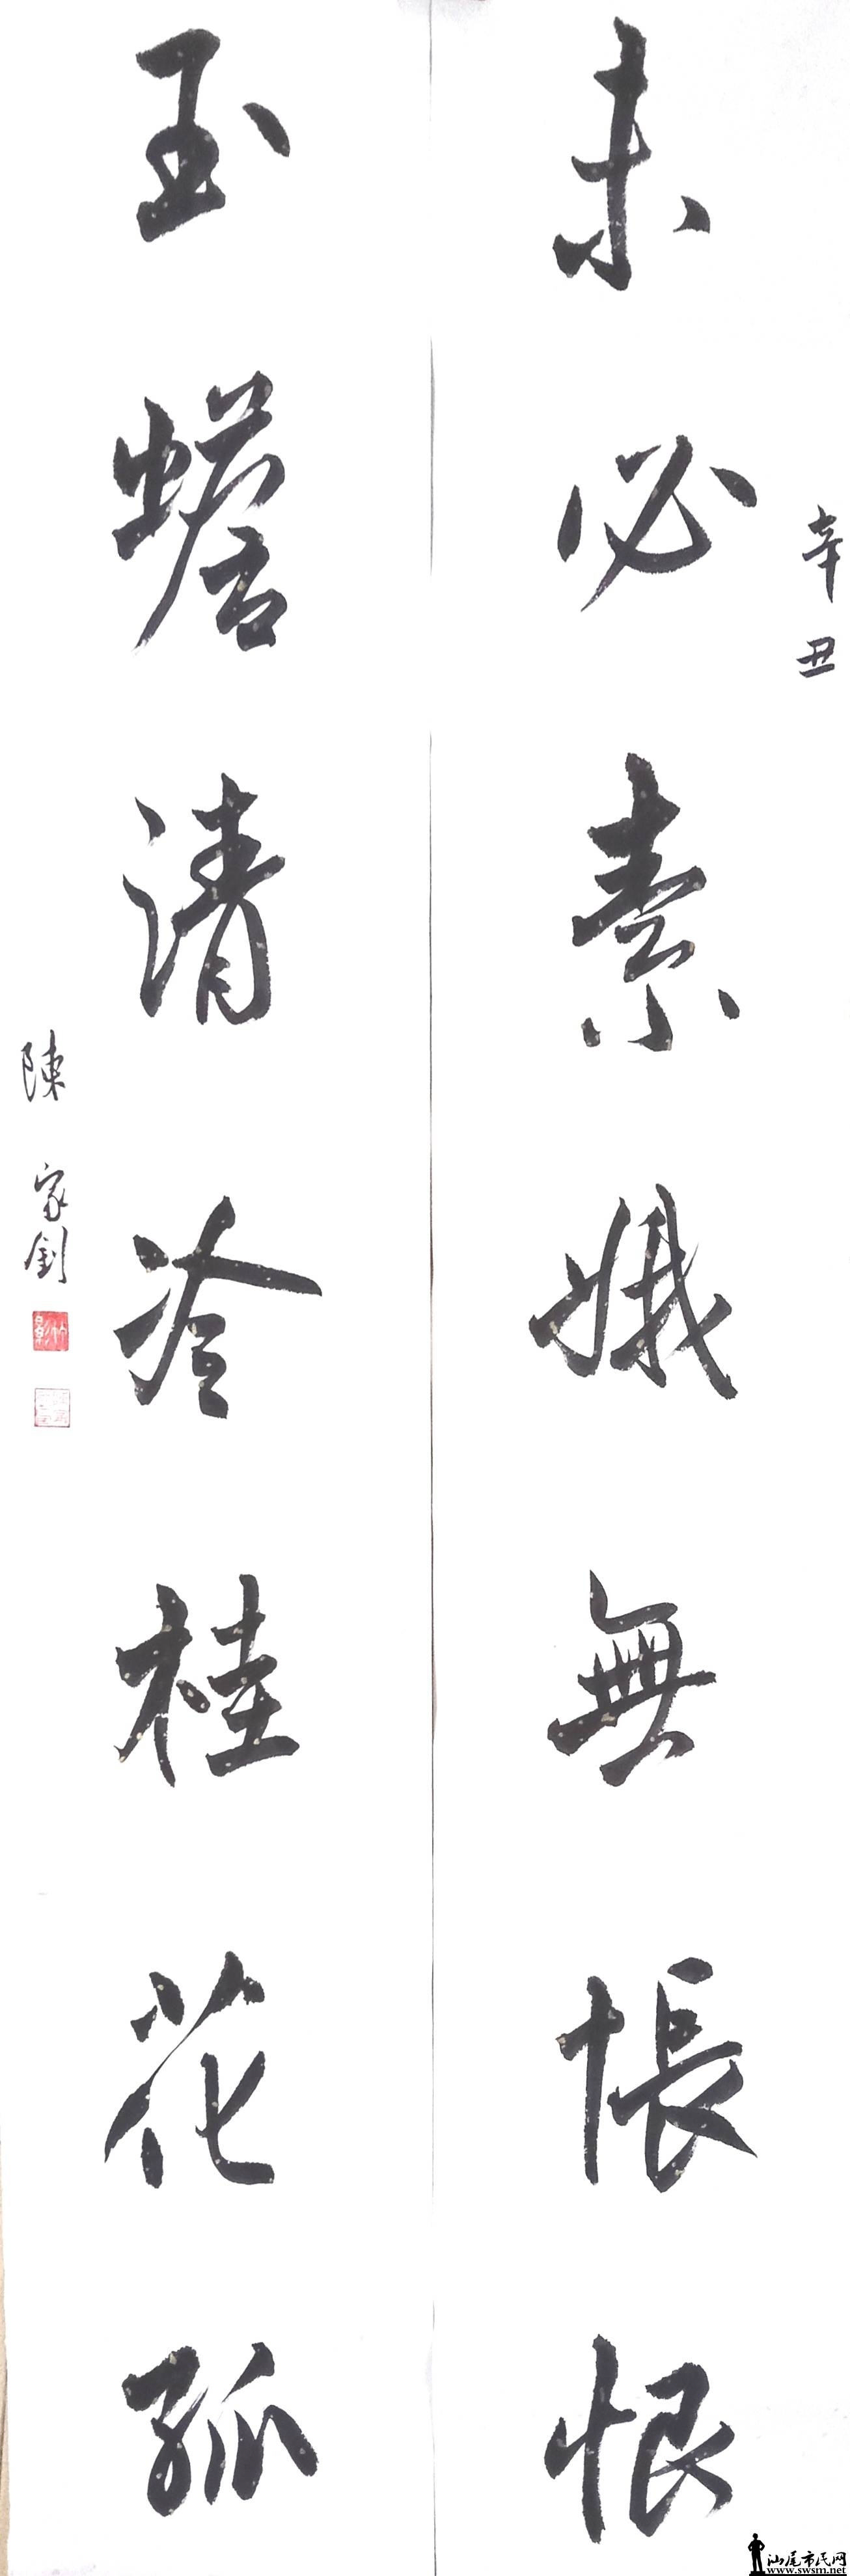 辛丑
未必素娥無悵恨
玉蟾清冷桂花孤
陳家釗
竹影
汕尾市民网
www.swsm.net